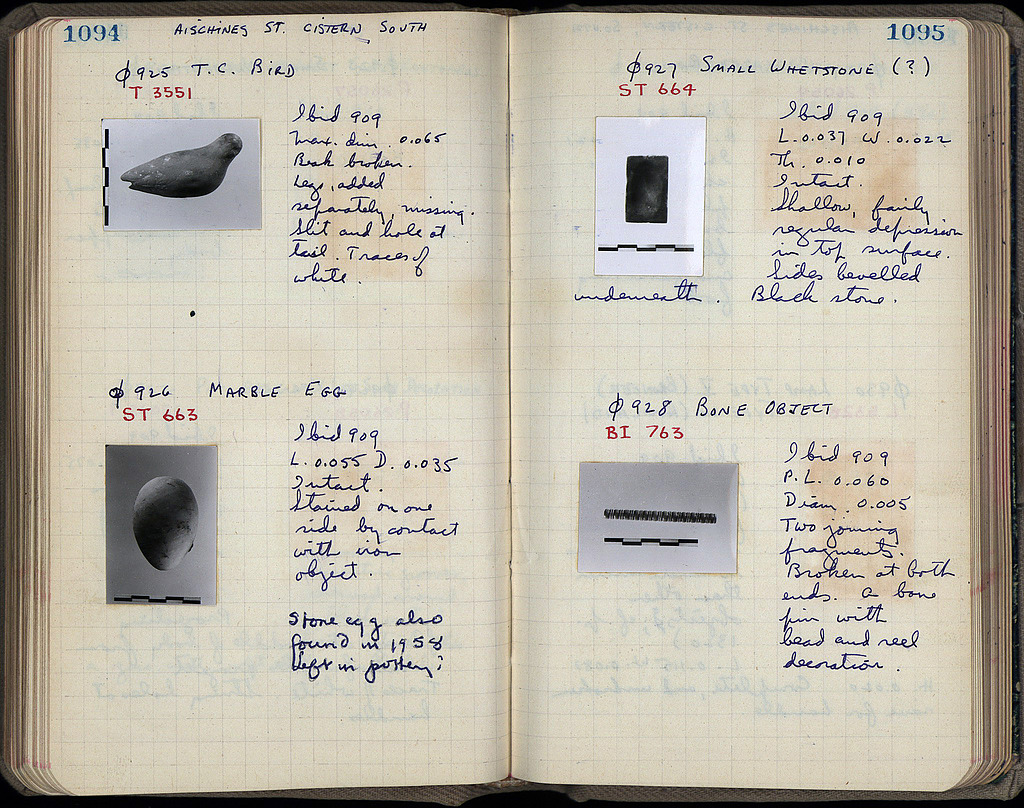 1094
AISCHINES ST. CISTERN, SOUTH
ϕ925 T.C. BIRD
T 3551
Ibid 909
Max. dim. 0.065
Beak broken.
Legs, added
separately, missing.
Slit and hole at
tail. Traces of
white.
ϕ 926 MARBLE EGG
ST 663
Ibid 909
L. 0.055 D. 0.035
Intact.
Stained on one
side by contact
with iron
object.
Stone egg also
found in 1958
left in pottery?
1095
ϕ927 SMALL WHETSTONE (?)
ST 664
Ibid 909
L. 0.037 W. 0.022
Th. 0.010
Intact.
Shallow, fairly
regular depression
in top surface.
Sides bevelled
underneath. Black stone.
ϕ928 BONE OBJECT
BI 763
Ibid 909
P.L. 0.060
Diam. 0.005
Two joining
fragments.
Broken at both
ends. A bone
pin with
bead and reel
decoration.